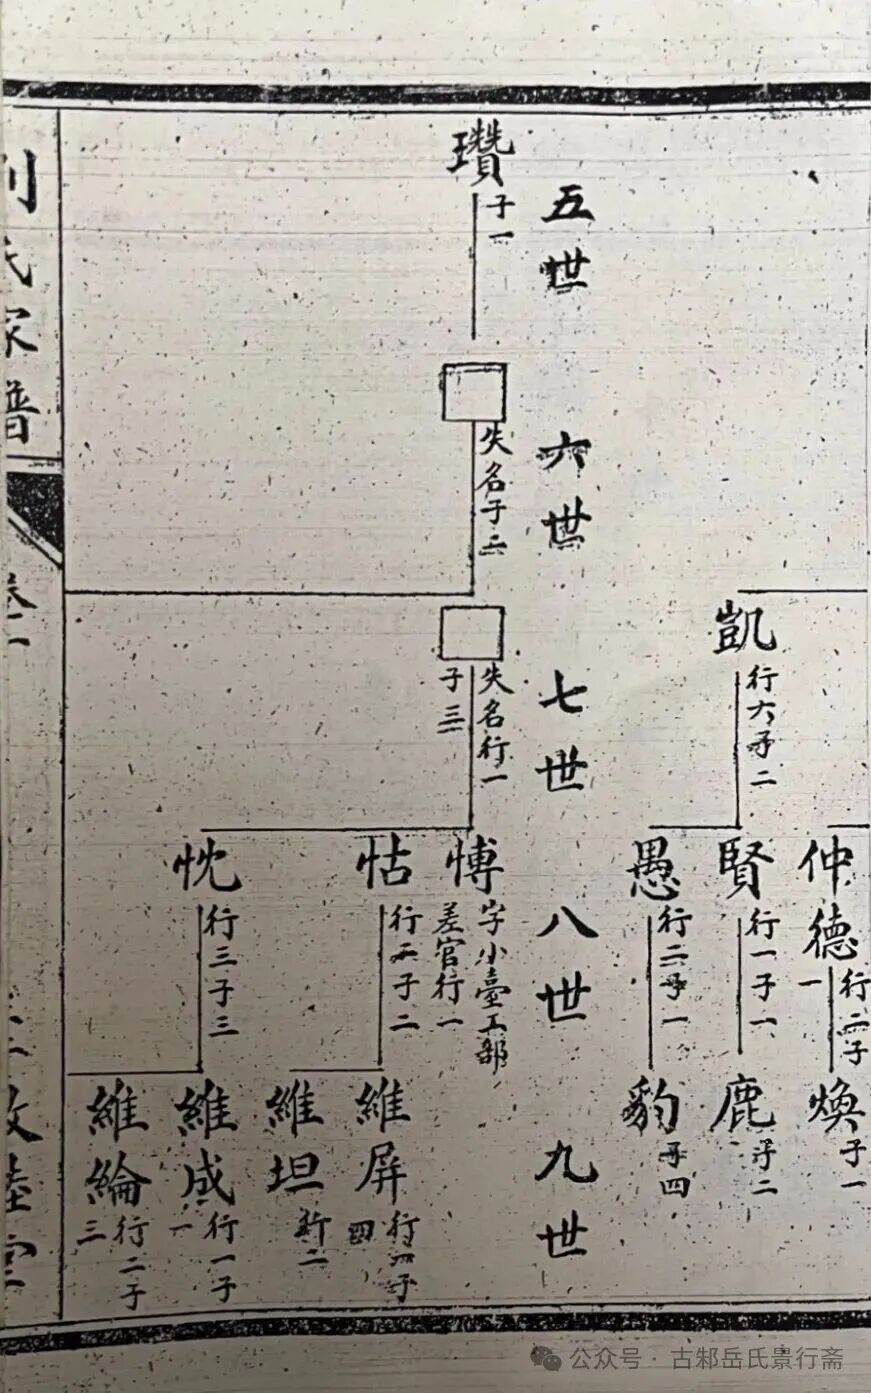 仲德
行二子一
煥
子一
凱
行六子二
賢
行一子一
鹿
子二
愚
行二子一
豹
子四
五世
六世
七世
八世
九世
瓚
子一
失名子二
失名行一
子三
愽
字小臺工部
差官行一
怙
行二子二
維屏
行一子
四
維坦
行二
忱
行三子三
維成
行一子
一
維綸
行二子
三
氏家譜
卷二
公众号·古邾岳氏景行斋